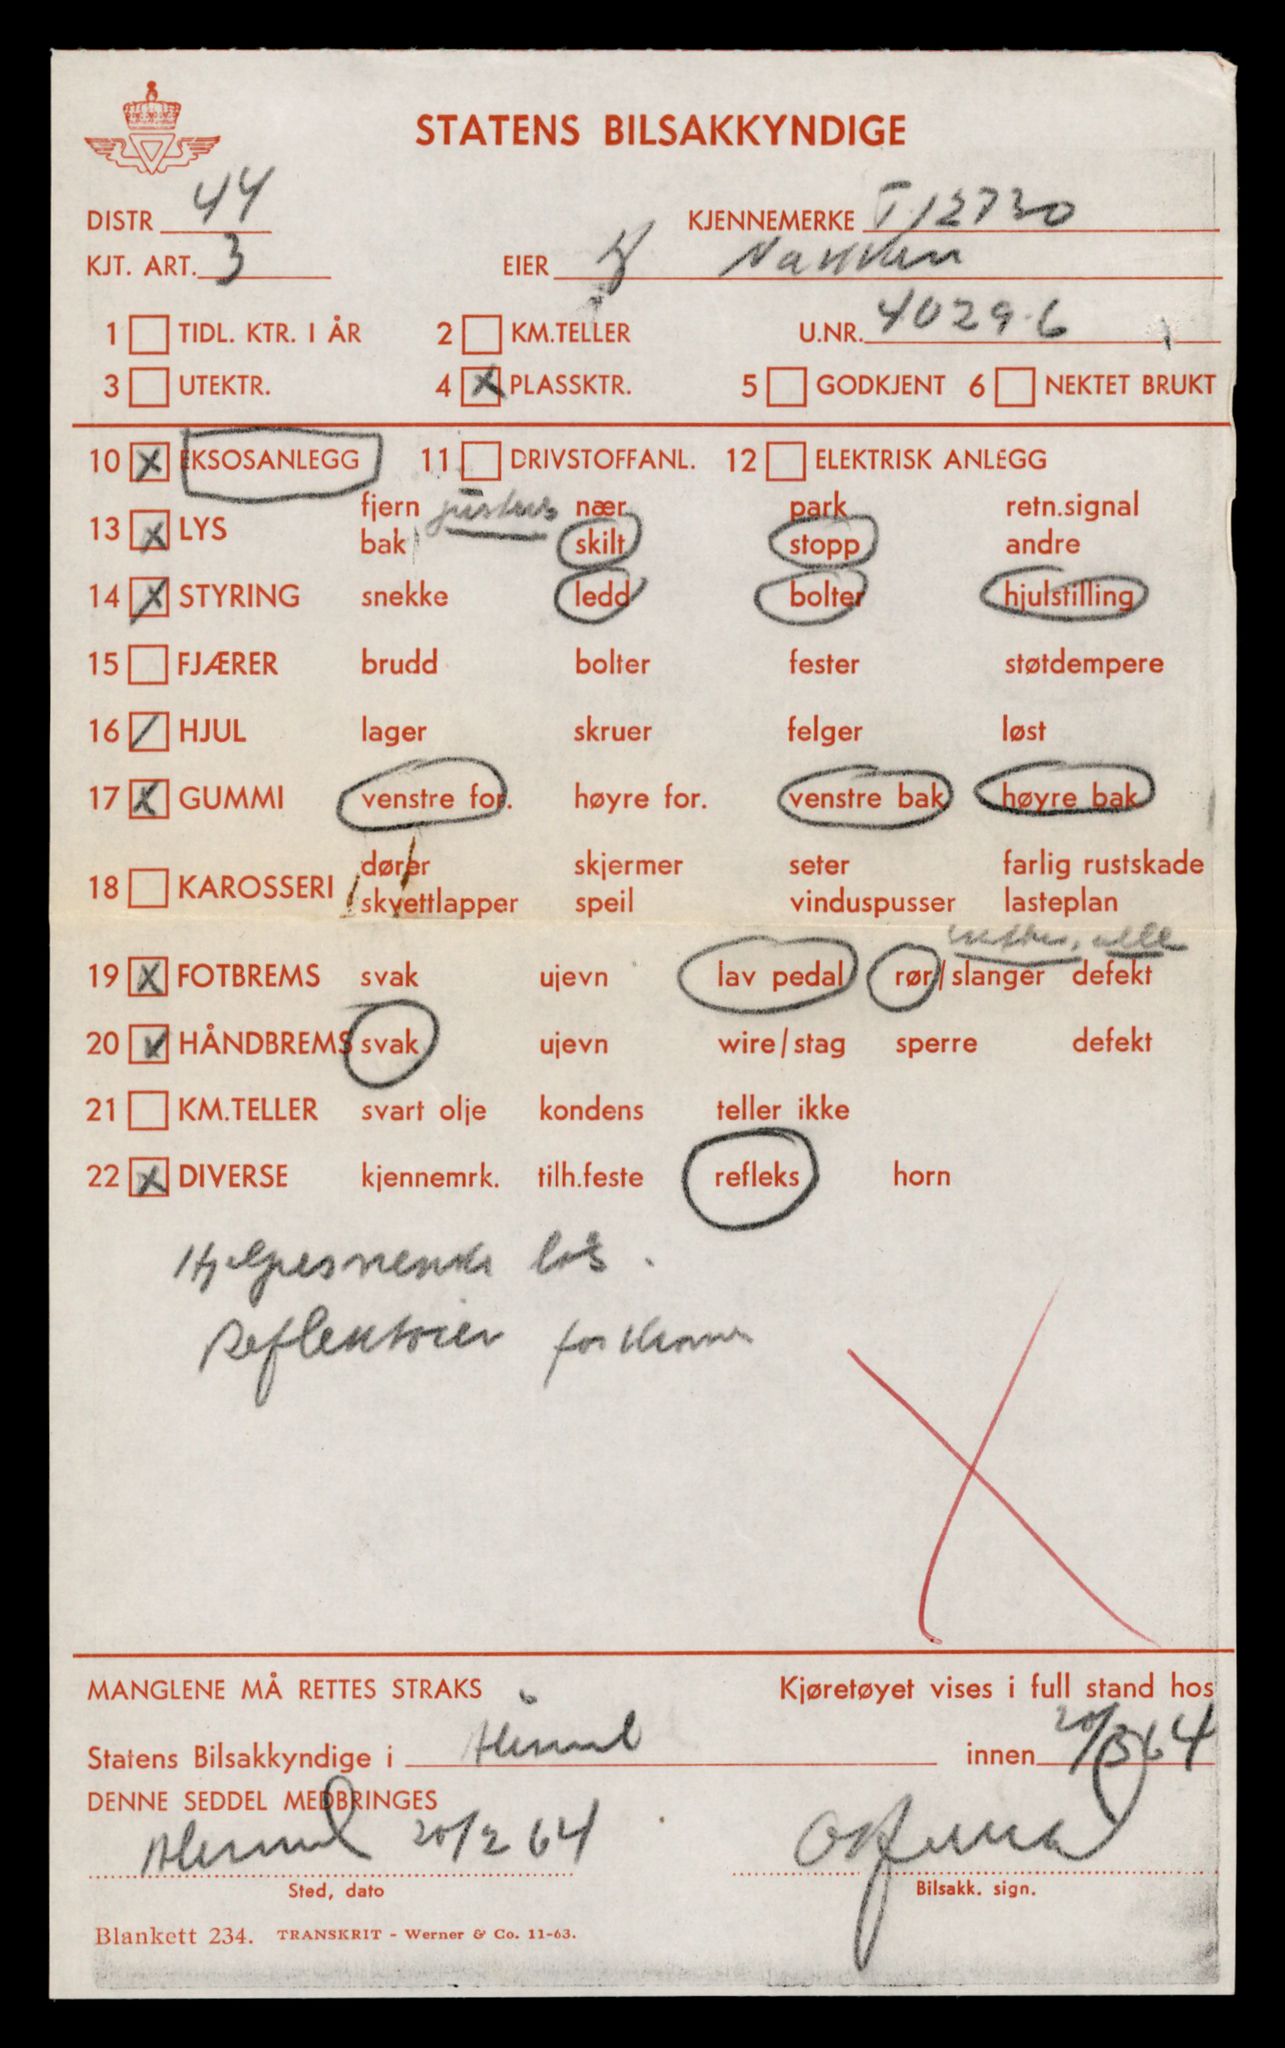 STATENS BILSAKKYNDIGE
DISTR 44 KJENNEMERKE T-12730
KJT. ART. 3 EIER Nakken
1 TIDL. KTR. I ÅR 2 KM.TELLER U.NR. 4029-6
3 UTEKTR. 4 X PLASSKTR. 5 GODKJENT 6 NEKTET BRUKT
10 X EKSOSANLEGG 11 DRIVSTOFFANL. 12 ELEKTRISK ANLEGG
fjern justeres nær park retn.signal
13 X LYS
bak skilt stopp andre
14 X STYRING snekke ledd bolter hjulstilling
15 FJÆRER brudd bolter fester støtdempere
16 / HJUL lager skruer felger løst
17 X GUMMI venstre for. høyre for. venstre bak høyre bak
dører skjermer seter farlig rustskade
18 KAROSSERI
skvettlapper speil vinduspusser lasteplan
alle
19 X FOTBREMS svak ujevn lav pedal rør/slanger defekt
20 X HÅNDBREMS svak ujevn wire/stag sperre defekt
21 KM.TELLER svart olje kondens teller ikke
22 X DIVERSE kjennemrk. tilh.feste refleks horn
løs.
Reflektorer
MANGLENE MÅ RETTES STRAKS Kjøretøyet vises i full stand hos
Statens Bilsakkyndige i Ålesund innen 20/3 64
DENNE SEDDEL MEDBRINGES
Ålesund 20/2 64
Sted, dato Bilsakk. sign.
Blankett 234. TRANSKRIT - Werner & Co. 11-63.